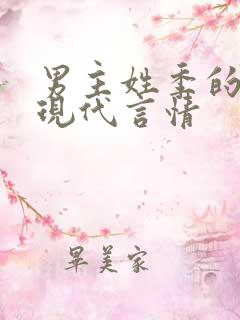 男主姓季的
現代言情
早美家